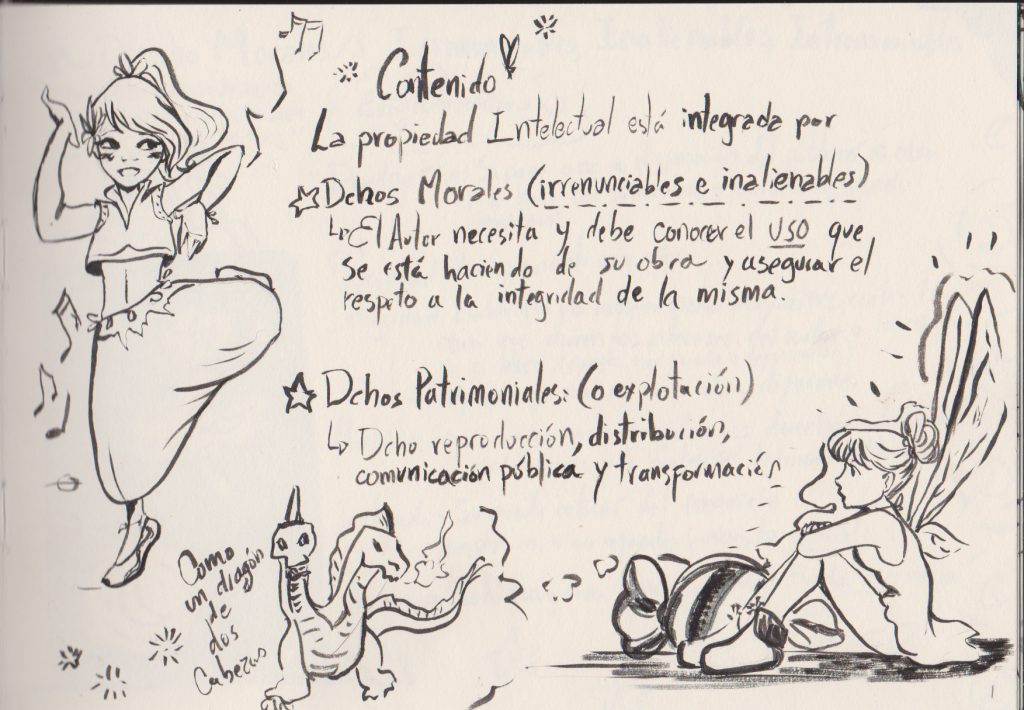 Contenido
La propiedad Intelectual está integrada por
Dchos Morales (irrenunciables e inalienables)
↳ El Autor necesita y debe conocer el USO que
se está haciendo de su obra y asegurar el
respeto a la integridad de la misma.
Dchos Patrimoniales: (o explotación)
↳ Dcho reproducción, distribución,
comunicación pública y transformación
Como
un dragón
de
dos
Cabezas